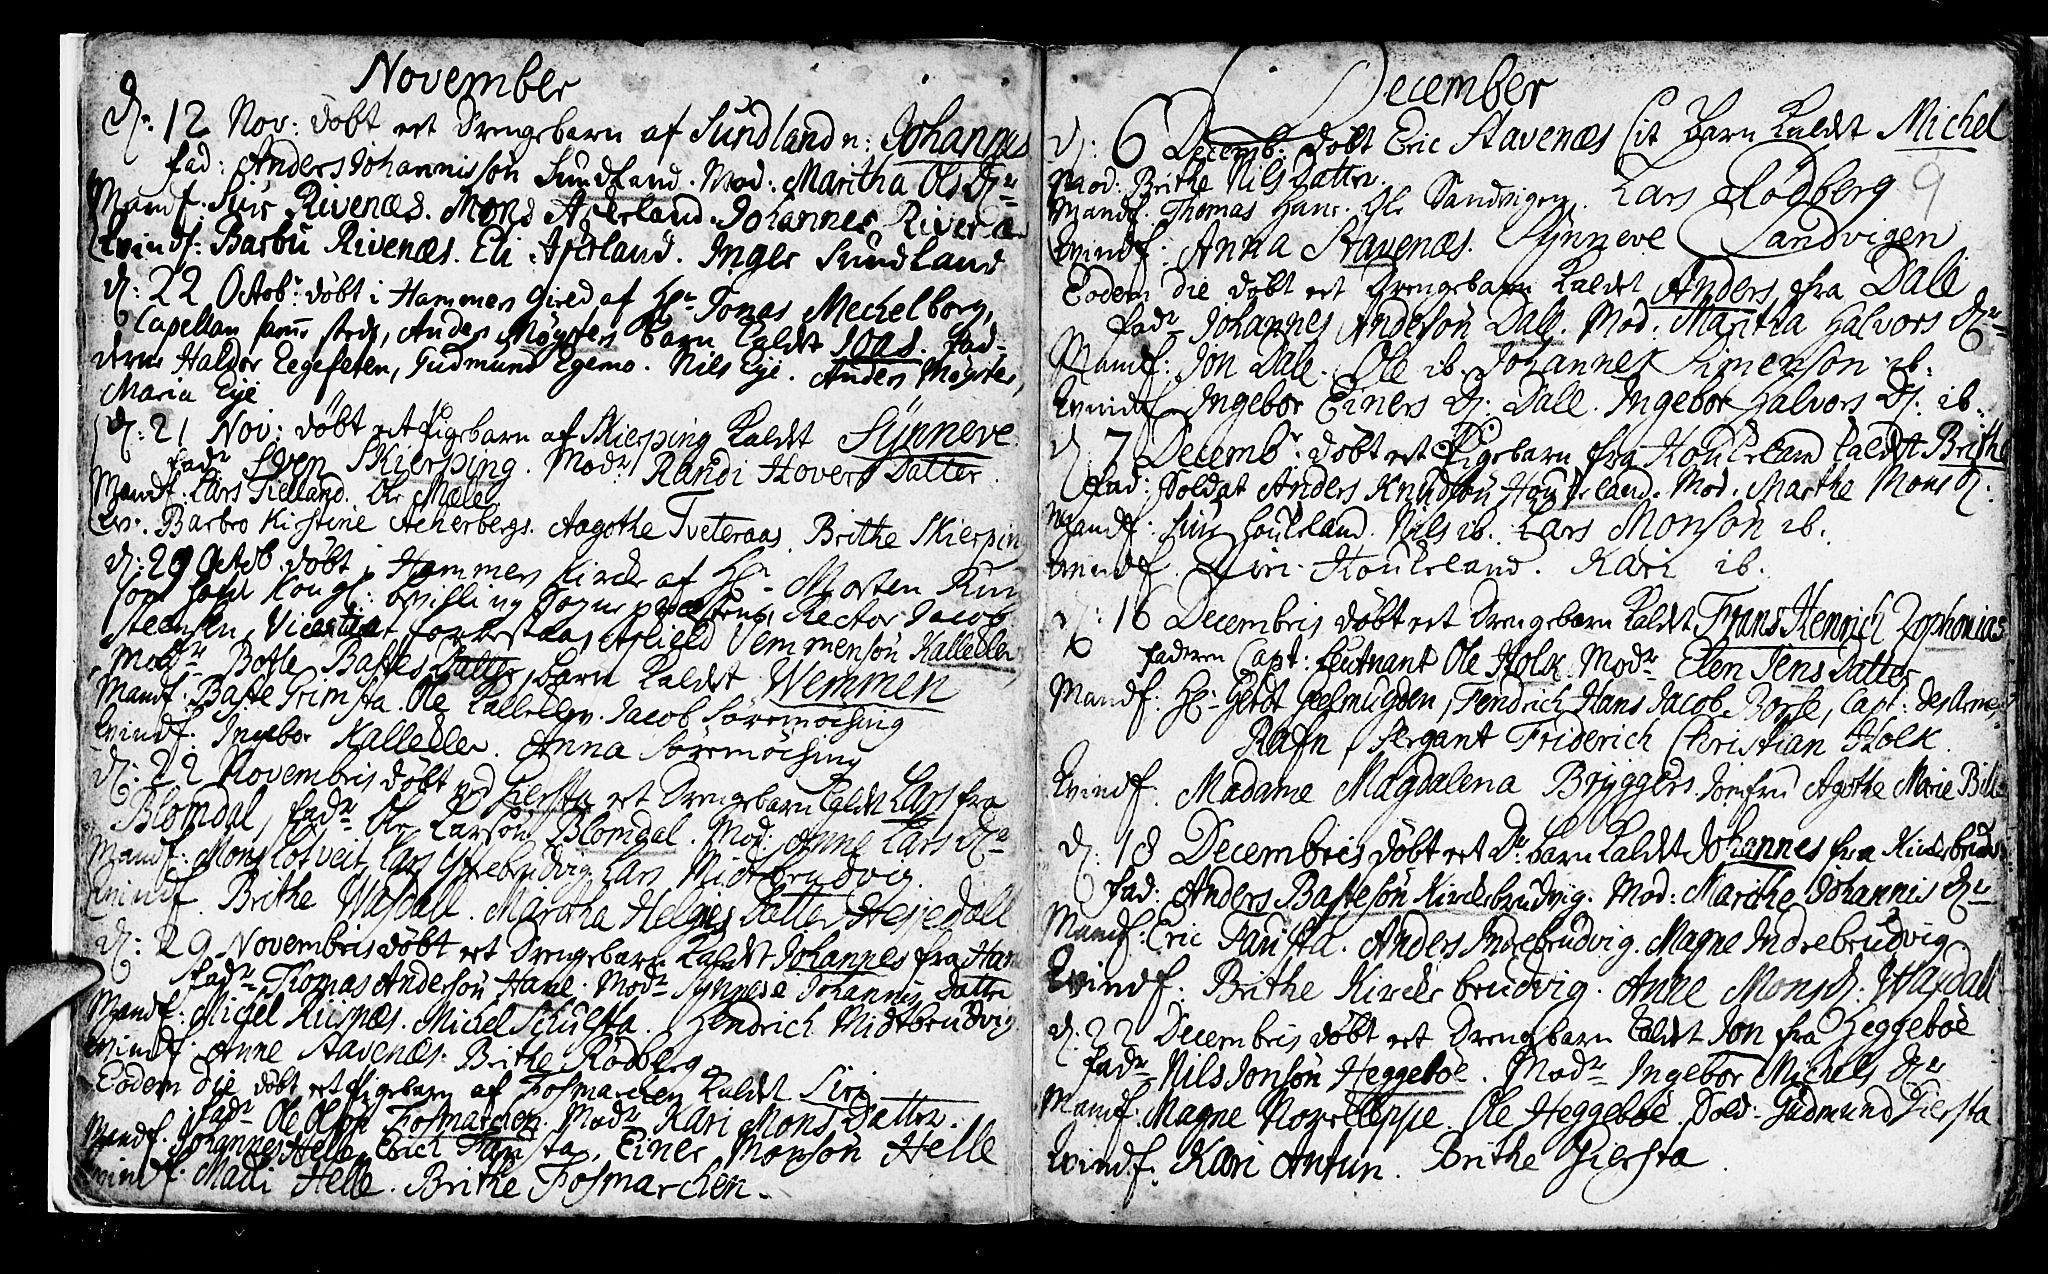 November
d: 12 Nov: döbt et Drengebarn af Sundland n: Johannes
fad: Anders Johannisson Sundland. Mod: Maritha Ols Dr
Mandf: Siur Rivenæs. Mons Aderland. Johannes Rivenæ
Qvindf: Barbu Rivenæs. Eli Aderland. Inger Sundland
d: 22 Octob: döbt i Hammers Gield af Hr Jonas Mechelborg,
Capellan samesteds, Anders Møgsters barn kaldet Joas. fad-
derne Haldor Eegefeten, Gudmund Egemo. Nils Eye. Anders Møgster,
Maria Eye
d: 21 Nov: döbt et Pigebarn af Skierping kaldet Synneve
fadr Sven Skierping. Modr Randi Hovers Datter
Mandf: Lars Tielland. Ole Mæle
Qv: Barbro Kirstine Acherbergs. Aagothe Tveteraas. Brithe Skierping
d: 29 Octob: döbt i Hammers Kirche af Hr Morten
som Kongl: Sogne præstens, Rector Jacob
Steensen, Vicariat forrestaar, Askield Vemmenson Kalleklev
Modr Botle Bastes Datter, barn kaldet Wemmen
Mandf: Baste Grimsta. Ole Kalleklev. Jacob Söremöising
Qvindf: Ingebor Kalleklev. Anna Söremöising
d: 22 Novembris döbt ved Giersta et Drengebarn kaldet Lars fra
Blomdal, fadr Ole Larson Blomdal. Mod: Anne Lars Dr
Mandf: Mons Lotveit, Lars Ystebrudvig Lars Midtbrudvig
Qvindf. Brithe Wasdall. Maritha Helges Datter Hesjedall
d: 29 Novembris döbt et Drengebarn kaldet Johannes fra Hane
fadr Thomas Anderson Hane. Modr Synneve Johannis Datter
Mandf: Michel Risnæs. Michel Skulsta. Hendrich Midtbrudvig
Qvindf: Anne Stavenæs. Brithe Rödberg
Eodem die döbt et Pigebarn af Fosmarchen kaldet Siri
fadr Ole Olson Fosmarchen. Modr Kari Mons Datter.
Mandf: Johannes Helle, Erich Farista, Einer Monson Helle
Qvindf: Madli Helle. Brithe Fosmarchen.
December
9
d: 6 Decemb: döbt Eric Stavenæs sit Barn kaldet Michel
Mod: Brithe Nils Datter
Mandf. Thomas Hane. Ole Sandvigen. Lars Rödberg
Qvindf: Anna Stavenæs. Synneve Sandvigen
Eodem die döbt et Drengebarn kaldet Anders fra Dale
fadr Johannes Anderson Dale. Mod: Maritha Halvors Dr
Mandf: Jon Dale. Ole ib. Johannes Simenson ib.
Qvindf. Ingebor Einers D: Dale. Ingebor Halvors D: ib.
d: 7 Decembr: döbt et Pigebarn fra Houkeland kaldet Brithe
fad: Soldat Anders Knudson Houkeland. Mod. Marthe Mons D:
Mandf: Siur Houkeland. Nils ib. Lars Monson ib.
Qvindf. Siri Houkeland. Kari ib.
d: 16 Decembris döbt et Drengebarn kaldet Frans Henrich Zophonias
faderen Capt: Leutnant Ole Holk. Modr Elen Jens Datter
Mandf: Hr Gerdt Geelmugden, Fendrich Hans Jacob Borse, Capt: des Arme-
Rafn, Sergant Friderich Christian Holk.
Qvindf. Madame Magdalena Bryggers. Jomfru Agothe Marie Bill
d: 18 Decembris döbt et Dr: barn kaldet Johannes fra Kirkebrudv
fad: Anders Basteson Kirkebrudvig. Mod: Marithe Johannis Dr
Mandf: Eric Farista. Anders Indrebrudvig. Magne Indrebrudvig
Qvindf: Brithe Kirkebrudvig. Anne Mons D: Wasdall
d: 22 Decembris döbt et Drengebarn kaldet Jon fra Heggeboe
fadr Nils Jonson Heggeboe. Modr Ingebor Michels Dr
Mandf: Magne Ole Heggeboe. Sold: Gudmund Giersta
Qvindf: Kari Antun. Brithe Giersta.